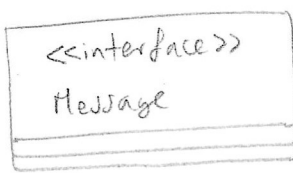 <<interface>>
Message